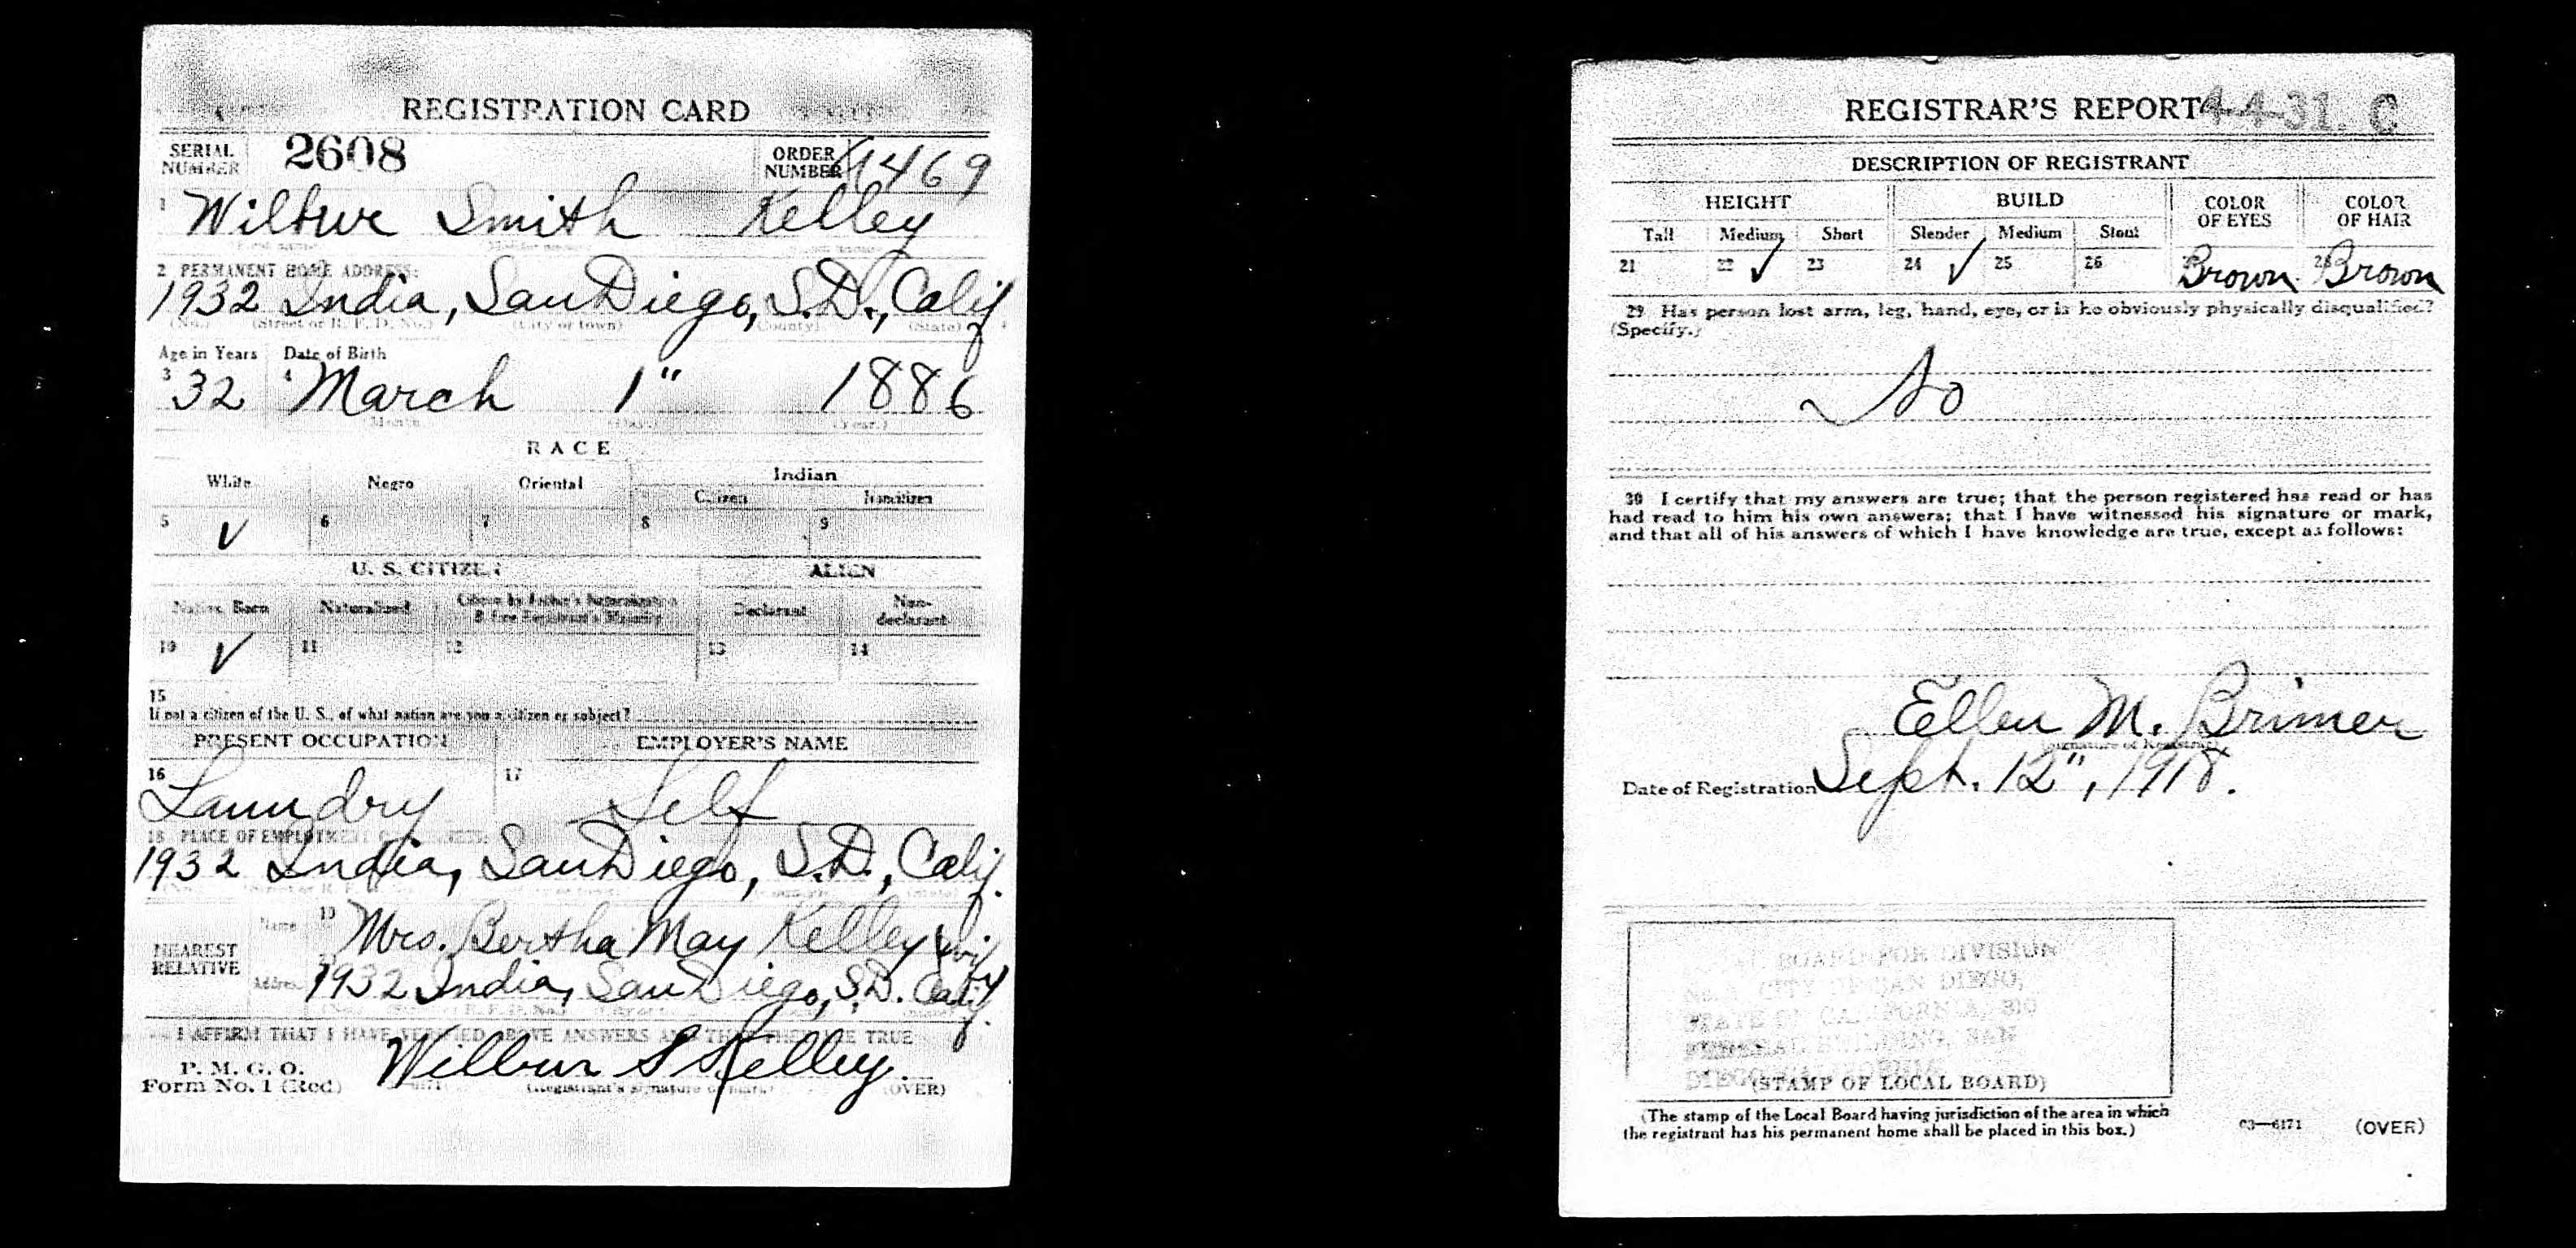 REGISTRATION CARD
SERIAL NUMBER 2608 ORDER NUMBER 1469
1 Wilbur Smith Kelley
2 PERMANENT HOME ADDRESS:
1932 India, San Diego, S.D., Calif
(No.) (Street or R. F. D. No.) (City or town) (County) (State)
Age in Years Date of Birth
3 32 4 March 1" 1886
(Month) (Day.) (Year.)
RACE
White Negro Oriental Indian
Citizen Noncitizen
5 ✓ 6 7 8 9
U. S. CITIZEN ALIEN
Native Born Naturalized Citizen by Father's Naturalization Before Registrant's Majority Declarant Non-declarant
10 ✓ 11 12 13 14
15
If not a citizen of the U. S., of what nation are you a citizen or subject?
PRESENT OCCUPATION EMPLOYER'S NAME
16 Laundry 17 Self
18 PLACE OF EMPLOYMENT
1932 India, San Diego, S.D., Calif.
NEAREST RELATIVE
Name 19 Mrs. Bertha May Kelley
Address 1932 India, San Diego, S.D. Calif.
I AFFIRM THAT I HAVE VERIFIED ABOVE ANSWERS AND THAT THEY ARE TRUE
P. M. G. O.
Form No. 1 (Red) Wilbur S Kelley.
(Registrant's signature or mark) (OVER)
REGISTRAR'S REPORT 4-4-31. C
DESCRIPTION OF REGISTRANT
HEIGHT BUILD COLOR OF EYES COLOR OF HAIR
Tall Medium Short Slender Medium Stout
21 22 ✓ 23 24 ✓ 25 26 27 Brown 28 Brown
29 Has person lost arm, leg, hand, eye, or is he obviously physically disqualified?
(Specify.)
No
30 I certify that my answers are true; that the person registered has read or has
had read to him his own answers; that I have witnessed his signature or mark,
and that all of his answers of which I have knowledge are true, except as follows:
Ellen M. Brimer
(Signature of Registrar)
Date of Registration Sept. 12", 1918.
BOARD FOR DIVISION
CITY OF SAN DIEGO,
STATE OF CALIFORNIA, 310
FEDERAL BUILDING, SAN
DIEGO
(STAMP OF LOCAL BOARD)
(The stamp of the Local Board having jurisdiction of the area in which
the registrant has his permanent home shall be placed in this box.)
03—6171 (OVER)